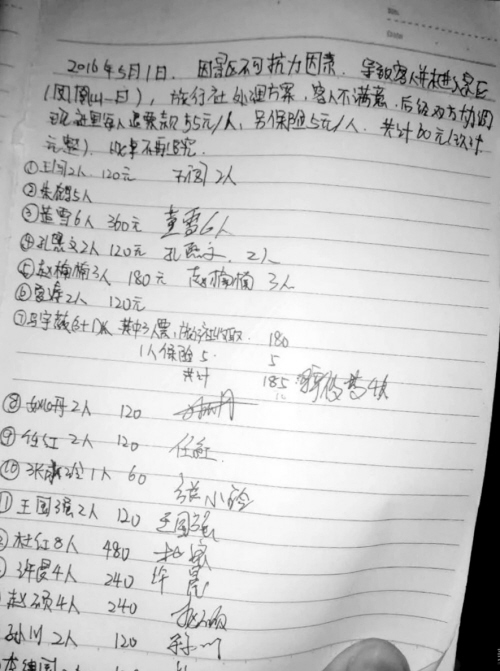 2016年5月1日. 因景区不可抗力因素. 导致客人未进景区
(凤凰山一日), 旅行社处理方案, 客人不满意. 后经双方协调
现旅社退每人退票款55元/人, 另保险5元/人. 共计60元
元整). 此事不再追究.
①王闯2人 120元 王闯2人
②朱鸽5人
③董雪6人 360元 董雪6人
④孔思文2人 120元 孔思文. 2人
⑤赵楠楠3人 180元 赵楠楠 3人
⑥ 2人 120元
⑦马宇薇 其中3人票, 旅行社收取. 180
1人保险5. 5
共计 185 4人
⑧ 丹2人 120
⑨任红2人 120 任红.
⑩张 1人 60 张小玲
⑪王国强2人 120 王国强
杜红8人 480
许晨4人 240 许晨
赵硕4人 240 赵硕
孙川2人 120 孙川